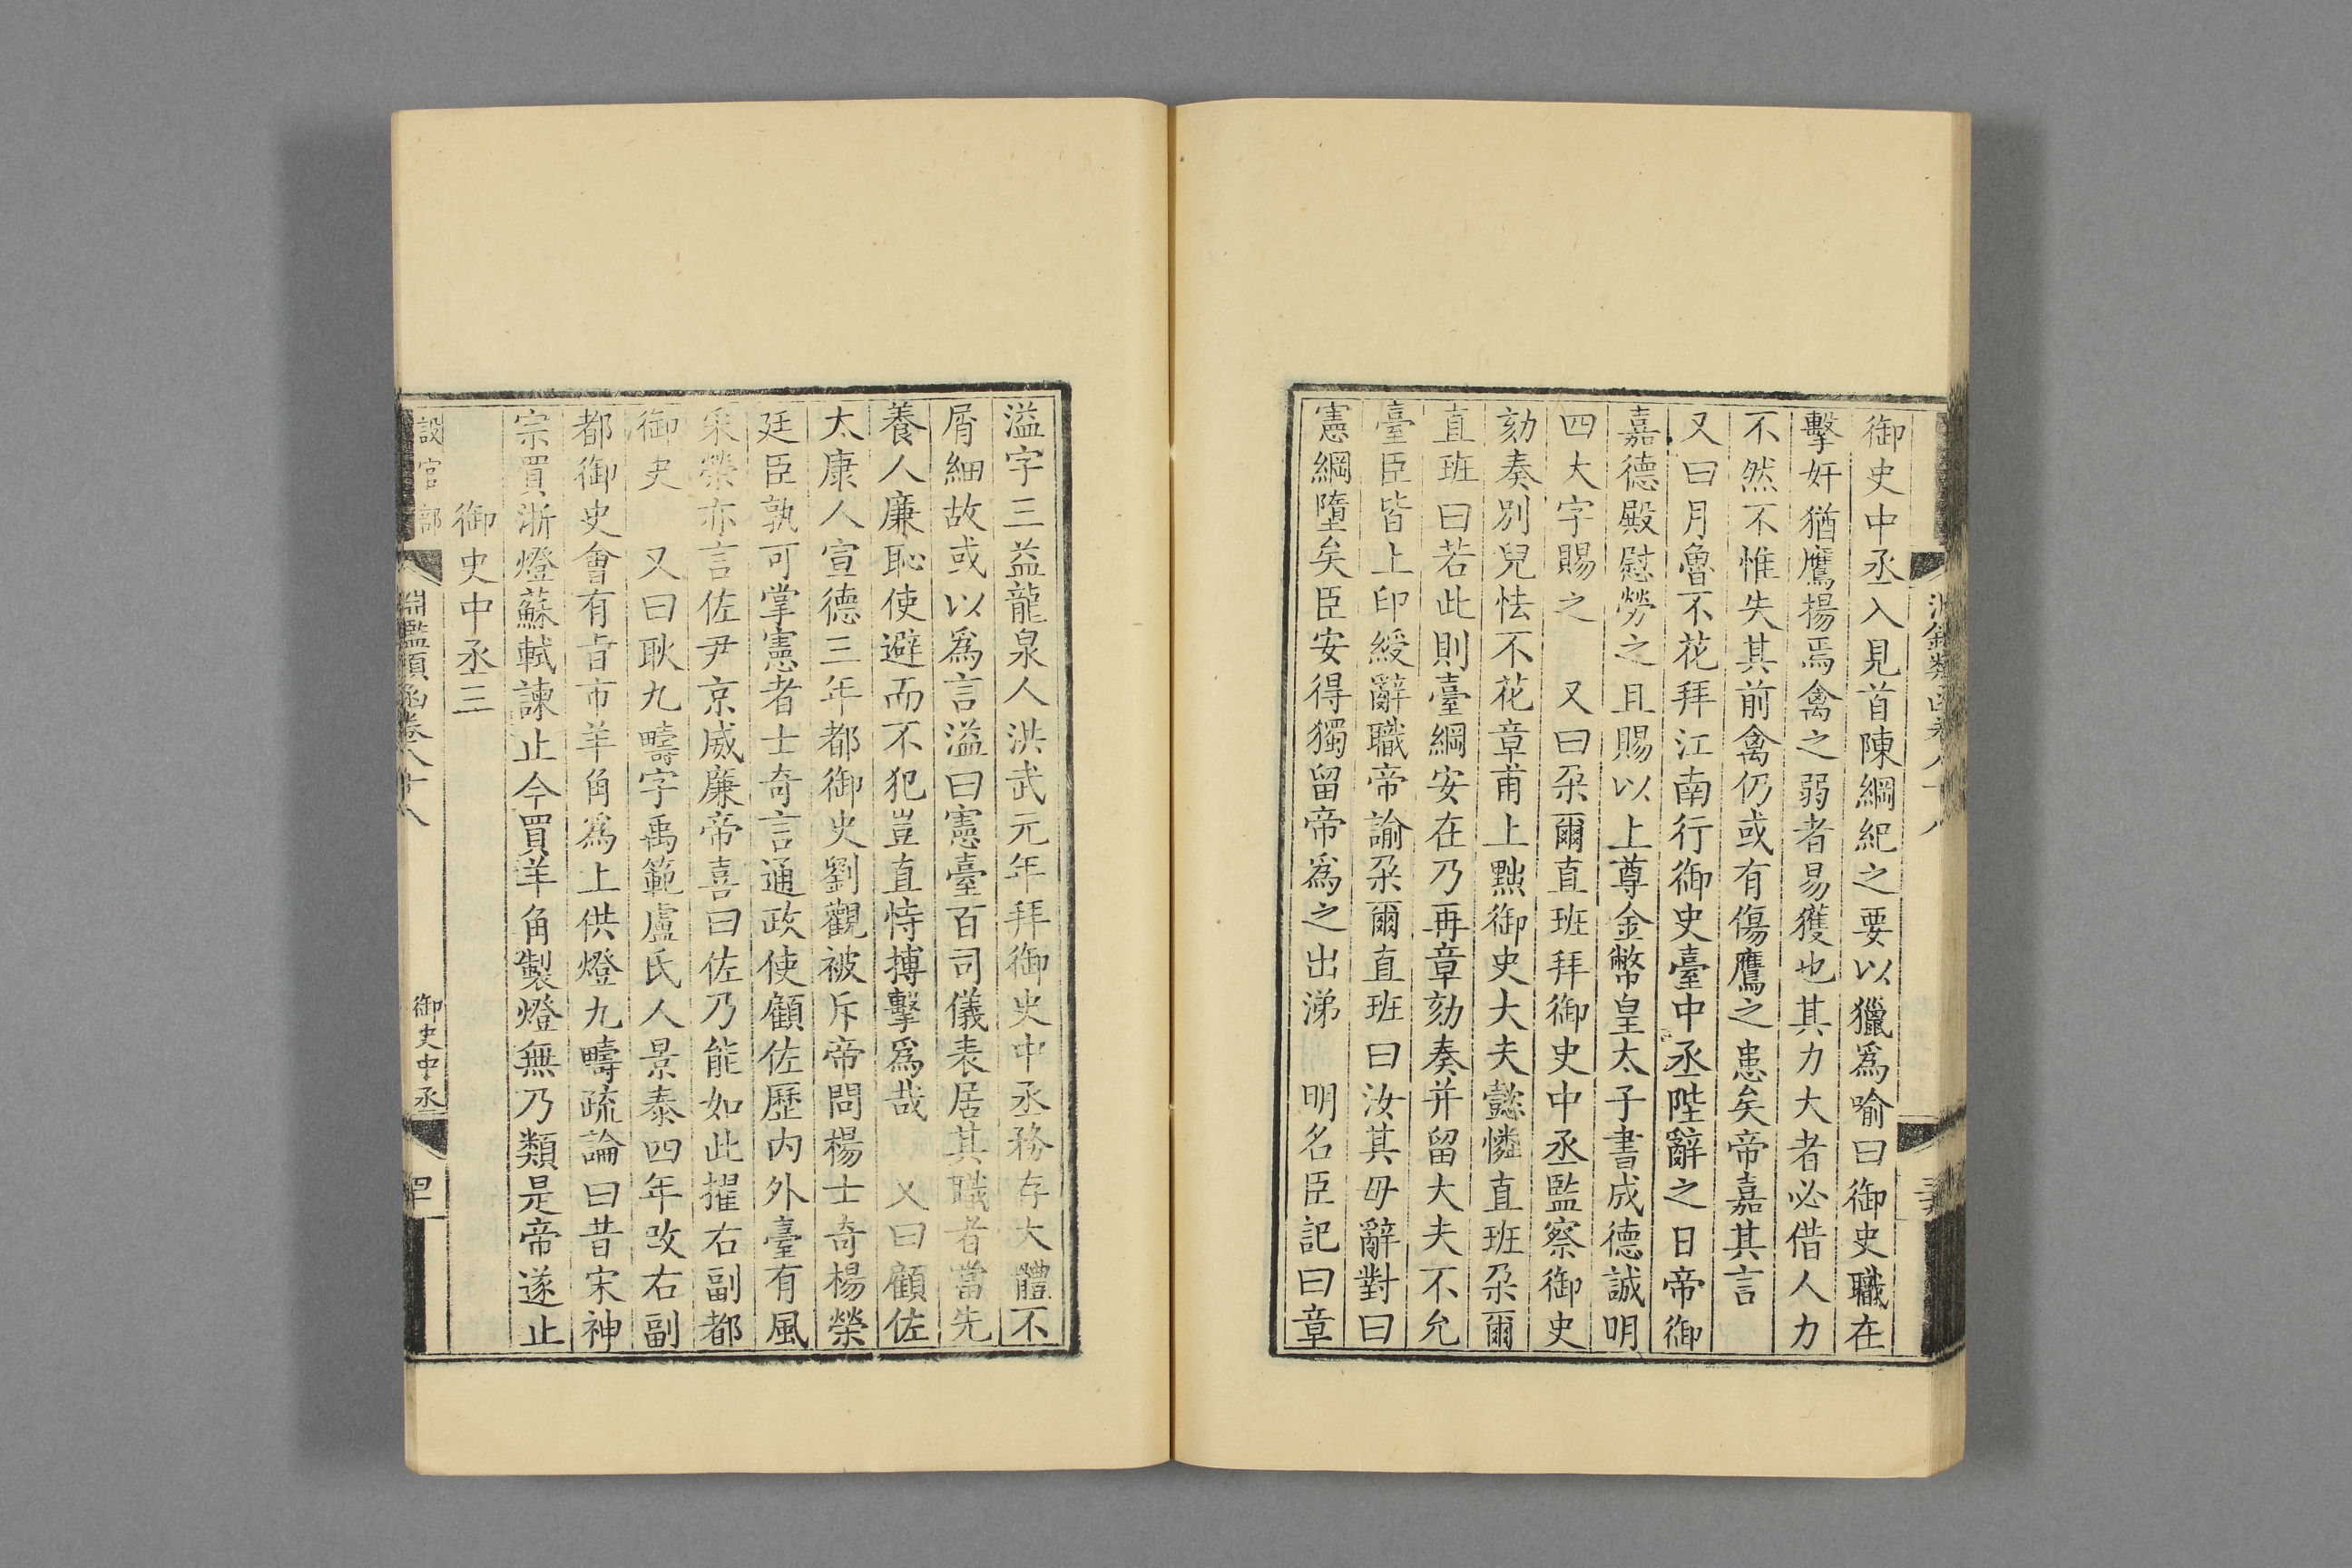 御史中丞入見首陳綱紀之要以獵爲喻曰御史職在
擊奸猶鷹揚焉禽之弱者易獲也其力大者必借人力
不然不惟失其前禽仍或有傷鷹之患矣帝嘉其言
又曰月魯不花拜江南行御史臺中丞陛辭之日帝御
嘉德殿慰勞之且賜以上尊金幣皇太子書成德誠明
四大字賜之　又曰朶爾直班拜御史中丞監察御史
劾奏別兒怯不花章甫上黜御史大夫懿憐直班朶爾
直班曰若此則臺綱安在乃再章劾奏并留大夫不允
臺臣皆上印綬辭職帝諭朶爾直班曰汝其毋辭對曰
憲綱墮矣臣安得獨留帝爲之出涕　明名臣記曰章
溢字三益龍泉人洪武元年拜御史中丞務存大體不
屑細故或以爲言溢曰憲臺百司儀表居其職者當先
養人廉恥使避而不犯豈直恃搏擊爲哉　又曰顧佐
太康人宣德三年都御史劉觀被斥帝問楊士奇楊榮
廷臣孰可掌憲者士奇言通政使顧佐歷内外臺有風
采榮亦言佐尹京威廉帝喜曰佐乃能如此擢右副都
御史　又曰耿九疇字禹範盧氏人景泰四年改右副
都御史會有旨市羊角爲上供燈九疇疏論曰昔宋神
宗買浙燈蘇軾諫止今買羊角製燈無乃類是帝遂止
御史中丞三
設官部
淵鑑類函卷八十八
御史中丞